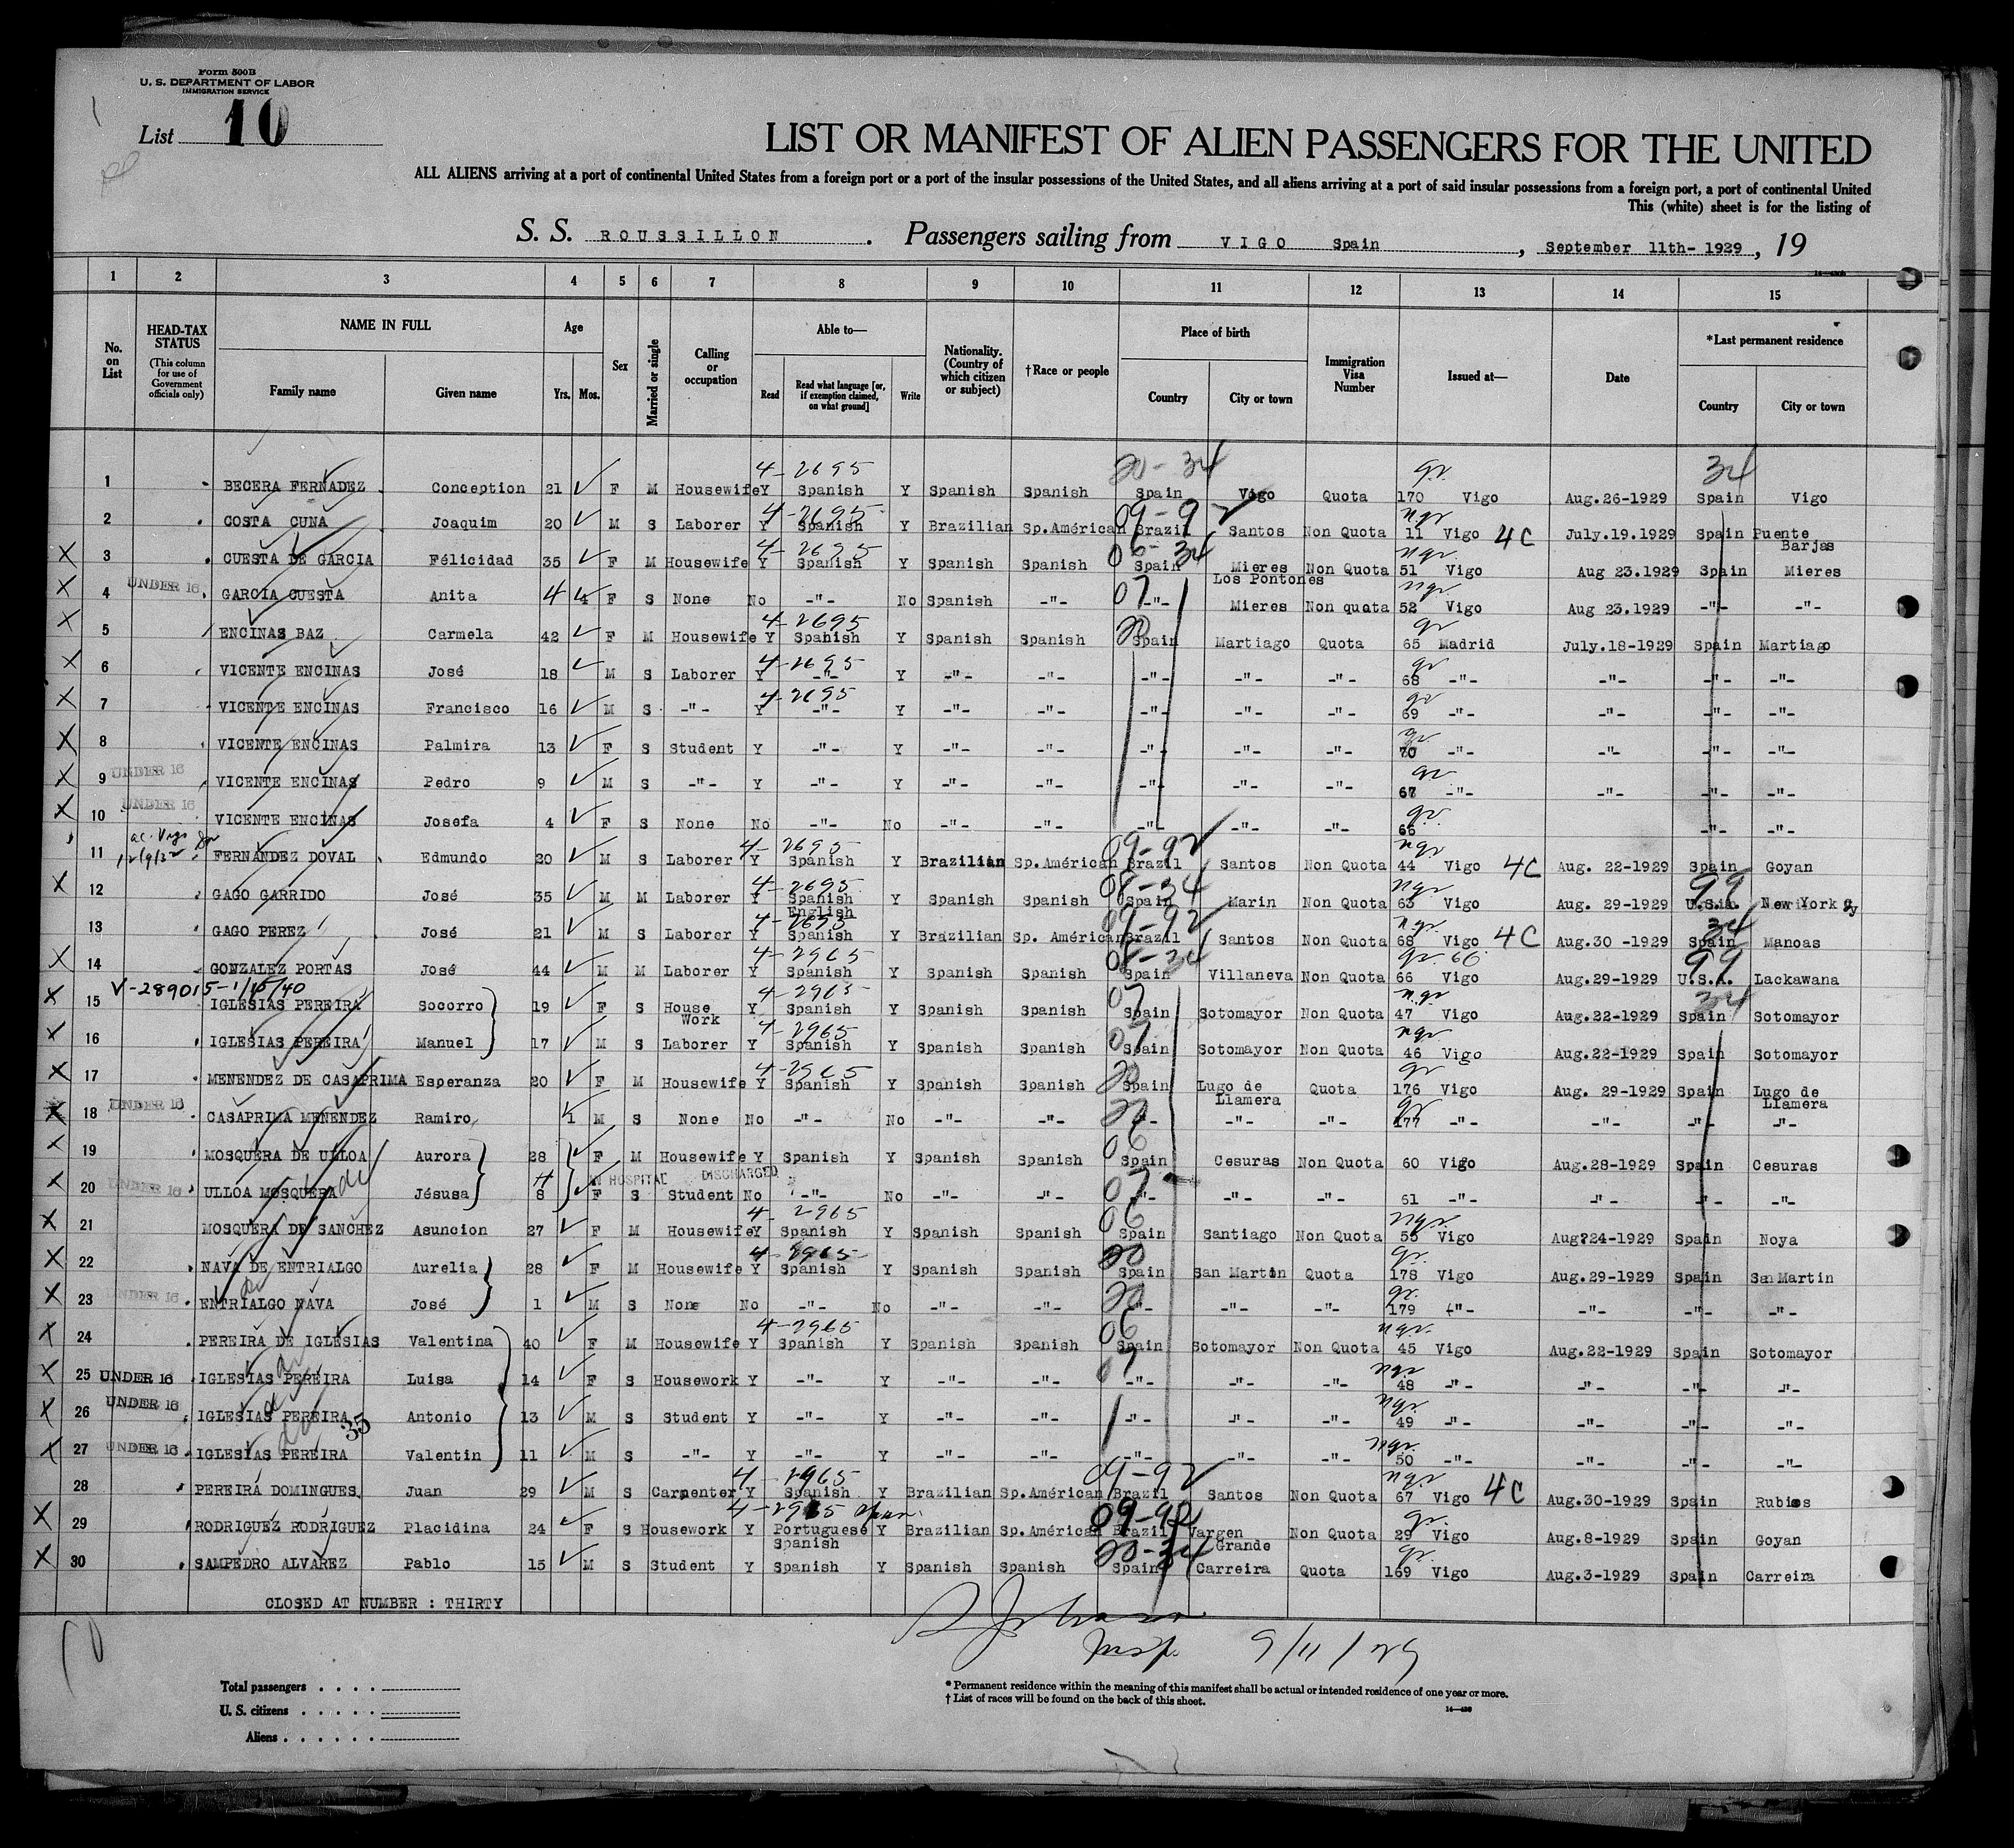 Form 500B
U. S. DEPARTMENT OF LABOR
IMMIGRATION SERVICE
List 10
LIST OR MANIFEST OF ALIEN PASSENGERS FOR THE UNITED
ALL ALIENS arriving at a port of continental United States from a foreign port or a port of the insular possessions of the United States, and all aliens arriving at a port of said insular possessions from a foreign port, a port of continental United
This (white) sheet is for the listing of
S. S. ROUSSILLON . Passengers sailing from VIGO Spain , September 11th- 1929 , 19
1 2 3 4 5 6 7 8 9 10 11 12 13 14 15
No. on List HEAD-TAX STATUS (This column for use of Government officials only) NAME IN FULL Family name Given name Age Yrs. Mos. Sex Married or single Calling or occupation Able to— Read Read what language [or, if exemption claimed, on what ground] Write Nationality. (Country of which citizen or subject) †Race or people Place of birth Country City or town Immigration Visa Number Issued at— Date *Last permanent residence Country City or town
4-2695 20-34 qr. 34
1 BECERA FERNADEZ Conception 21 F M Housewife Y Spanish Y Spanish Spanish Spain Vigo Quota 170 Vigo Aug.26-1929 Spain Vigo
4-2695 09-92 nqr
2 COSTA CUNA Joaquim 20 M S Laborer Y Spanish Y Brazilian Sp.Américan Brazil Santos Non Quota 11 Vigo 4C July.19.1929 Spain Puente Barjas
4-2695 06-34 nqr
X 3 CUESTA DE GARCIA Félicidad 35 F M Housewife Y Spanish Y Spanish Spanish Spain Mieres Non Quota 51 Vigo Aug 23.1929 Spain Mieres
UNDER 16 07 Los Pontones nqr
X 4 GARCIA CUESTA Anita 4 4 F S None No -"- No Spanish -"- -"- Mieres Non quota 52 Vigo Aug 23.1929 -"- -"-
4-2695 20 qr
X 5 ENCINAS BAZ Carmela 42 F M Housewife Y Spanish Y Spanish Spanish Spain Martiago Quota 65 Madrid July.18-1929 Spain Martiago
4-2695 qr
X 6 VICENTE ENCINAS José 18 M S Laborer Y -"- Y -"- -"- -"- -"- -"- 68 -"- -"- -"- -"-
4-2695 qr
X 7 VICENTE ENCINAS Francisco 16 M S -"- Y -"- Y -"- -"- -"- -"- -"- 69 -"- -"- -"- -"-
qr
X 8 VICENTE ENCINAS Palmira 13 F S Student Y -"- Y -"- -"- -"- -"- -"- 70 -"- -"- -"- -"-
UNDER 16 qr
X 9 VICENTE ENCINAS Pedro 9 M S -"- Y -"- Y -"- -"- -"- -"- -"- 67 -"- -"- -"- -"-
UNDER 16 qr.
X 10 VICENTE ENCINAS Josefa 4 F S None No -"- No -"- -"- -"- -"- -"- 66 -"- -"-
4-2695 09-92 nqr
11 FERNANDEZ DOVAL Edmundo 20 M S Laborer Y Spanish Y Brazilian Sp.Américan Brazil Santos Non Quota 44 Vigo 4C Aug. 22-1929 Spain Goyan
4-2695 08-34 nqr 99
X 12 GAGO GARRIDO José 35 M M Laborer Y Spanish English Y Spanish Spanish Spain Marin Non Quota 63 Vigo Aug. 29-1929 U.S.A. New York
4-2695 09-92 nqr 34
13 GAGO PEREZ José 21 M S Laborer Y Spanish Y Brazilian Sp. Américan Brazil Santos Non Quota 68 Vigo 4C Aug.30 -1929 Spain Manoas
4-2965 08-34 99
X 14 GONZALEZ PORTAS José 44 M M Laborer Y Spanish Y Spanish Spanish Spain Villaneva Non Quota 66 Vigo Aug.29-1929 U.S.A. Lackawana
V-289015-1/15/40 4-2965 07 nqr 34
X 15 IGLESIAS PEREIRA Socorro 19 F S House Work Y Spanish Y Spanish Spanish Spain Sotomayor Non Quota 47 Vigo Aug.22-1929 Spain Sotomayor
4-2965 07 nqr
X 16 IGLESIAS PEREIRA Manuel 17 M S Laborer Y Spanish Y Spanish Spanish Spain Sotomayor Non Quota 46 Vigo Aug.22-1929 Spain Sotomayor
4-2965 20 qr
X 17 MENENDEZ DE CASAPRIMA Esperanza 20 F M Housewife Y Spanish Y Spanish Spanish Spain Lugo de Llamera Quota 176 Vigo Aug. 29-1929 Spain Lugo de Llamera
UNDER 16 20 qr
X 18 CASAPRIMA MENENDEZ Ramiro 1 M S None No -"- No -"- -"- -"- -"- -"- 177 -"- -"- -"- -"-
06
X 19 MOSQUERA DE ULLOA Aurora 28 F M Housewife Y Spanish Y Spanish Spanish Spain Cesuras Non Quota 60 Vigo Aug.28-1929 Spain Cesuras
UNDER 16 IN HOSPITAL DISCHARGED 07
X 20 ULLOA MOSQUERA Jésusa 8 F S Student No -"- No -"- -"- -"- -"- -"- 61 -"- -"- -"- -"-
4-2965 06 nqr
X 21 MOSQUERA DE SANCHEZ Asuncion 27 F M Housewife Y Spanish Y Spanish Spanish Spain Santiago Non Quota 55 Vigo Aug?24-1929 Spain Noya
4-2965 20 qr.
X 22 NAVA DE ENTRIALGO Aurelia 28 F M Housewife Y Spanish Y Spanish Spanish Spain San Martin Quota 178 Vigo Aug.29-1929 Spain San Martin
UNDER 16 20 qr.
X 23 ENTRIALGO NAVA José 1 M S None No -"- No -"- -"- -"- -"- -"- 179 -"- -"- -"- -"-
4-2965 06 nqr.
X 24 PEREIRA DE IGLESIAS Valentina 40 F M Housewife Y Spanish Y Spanish Spanish Spain Sotomayor Non Quota 45 Vigo Aug.22-1929 Spain Sotomayor
07 nqr
X 25 UNDER 16 IGLESIAS PEREIRA Luisa 14 F S Housework Y -"- Y -"- -"- -"- -"- -"- 48 -"- -"- -"- -"-
UNDER 16 nqr
X 26 IGLESIAS PEREIRA 35 Antonio 13 M S Student Y -"- Y -"- -"- -"- -"- -"- 49 -"- -"- -"- -"-
nqr.
X 27 UNDER 16 IGLESIAS PEREIRA Valentin 11 M S -"- Y -"- Y -"- -"- -"- -"- -"- 50 -"- -"- -"- -"-
4-2965 09-92 nqr
28 PEREIRA DOMINGUES Juan 29 M S Carpenter Y Spanish Y Brazilian Sp.Américan Brazil Santos Non Quota 67 Vigo 4C Aug.30-1929 Spain Rubios
4-2965 09-92 qr.
X 29 RODRIGUEZ RODRIGUEZ Placidina 24 F S Housework Y Portuguese Spanish Y Brazilian Sp.Américan Brazil Vargen Grande Non Quota 29 Vigo Aug.8-1929 Spain Goyan
20-34 qr.
X 30 SAMPEDRO ALVAREZ Pablo 15 M S Student Y Spanish Y Spanish Spanish Spain Carreira Quota 169 Vigo Aug.3-1929 Spain Carreira
CLOSED AT NUMBER : THIRTY
Insp. 9/11/29
Total passengers . . . .
U. S. citizens . . . . .
Aliens . . . . . .
* Permanent residence within the meaning of this manifest shall be actual or intended residence of one year or more.
† List of races will be found on the back of this sheet.